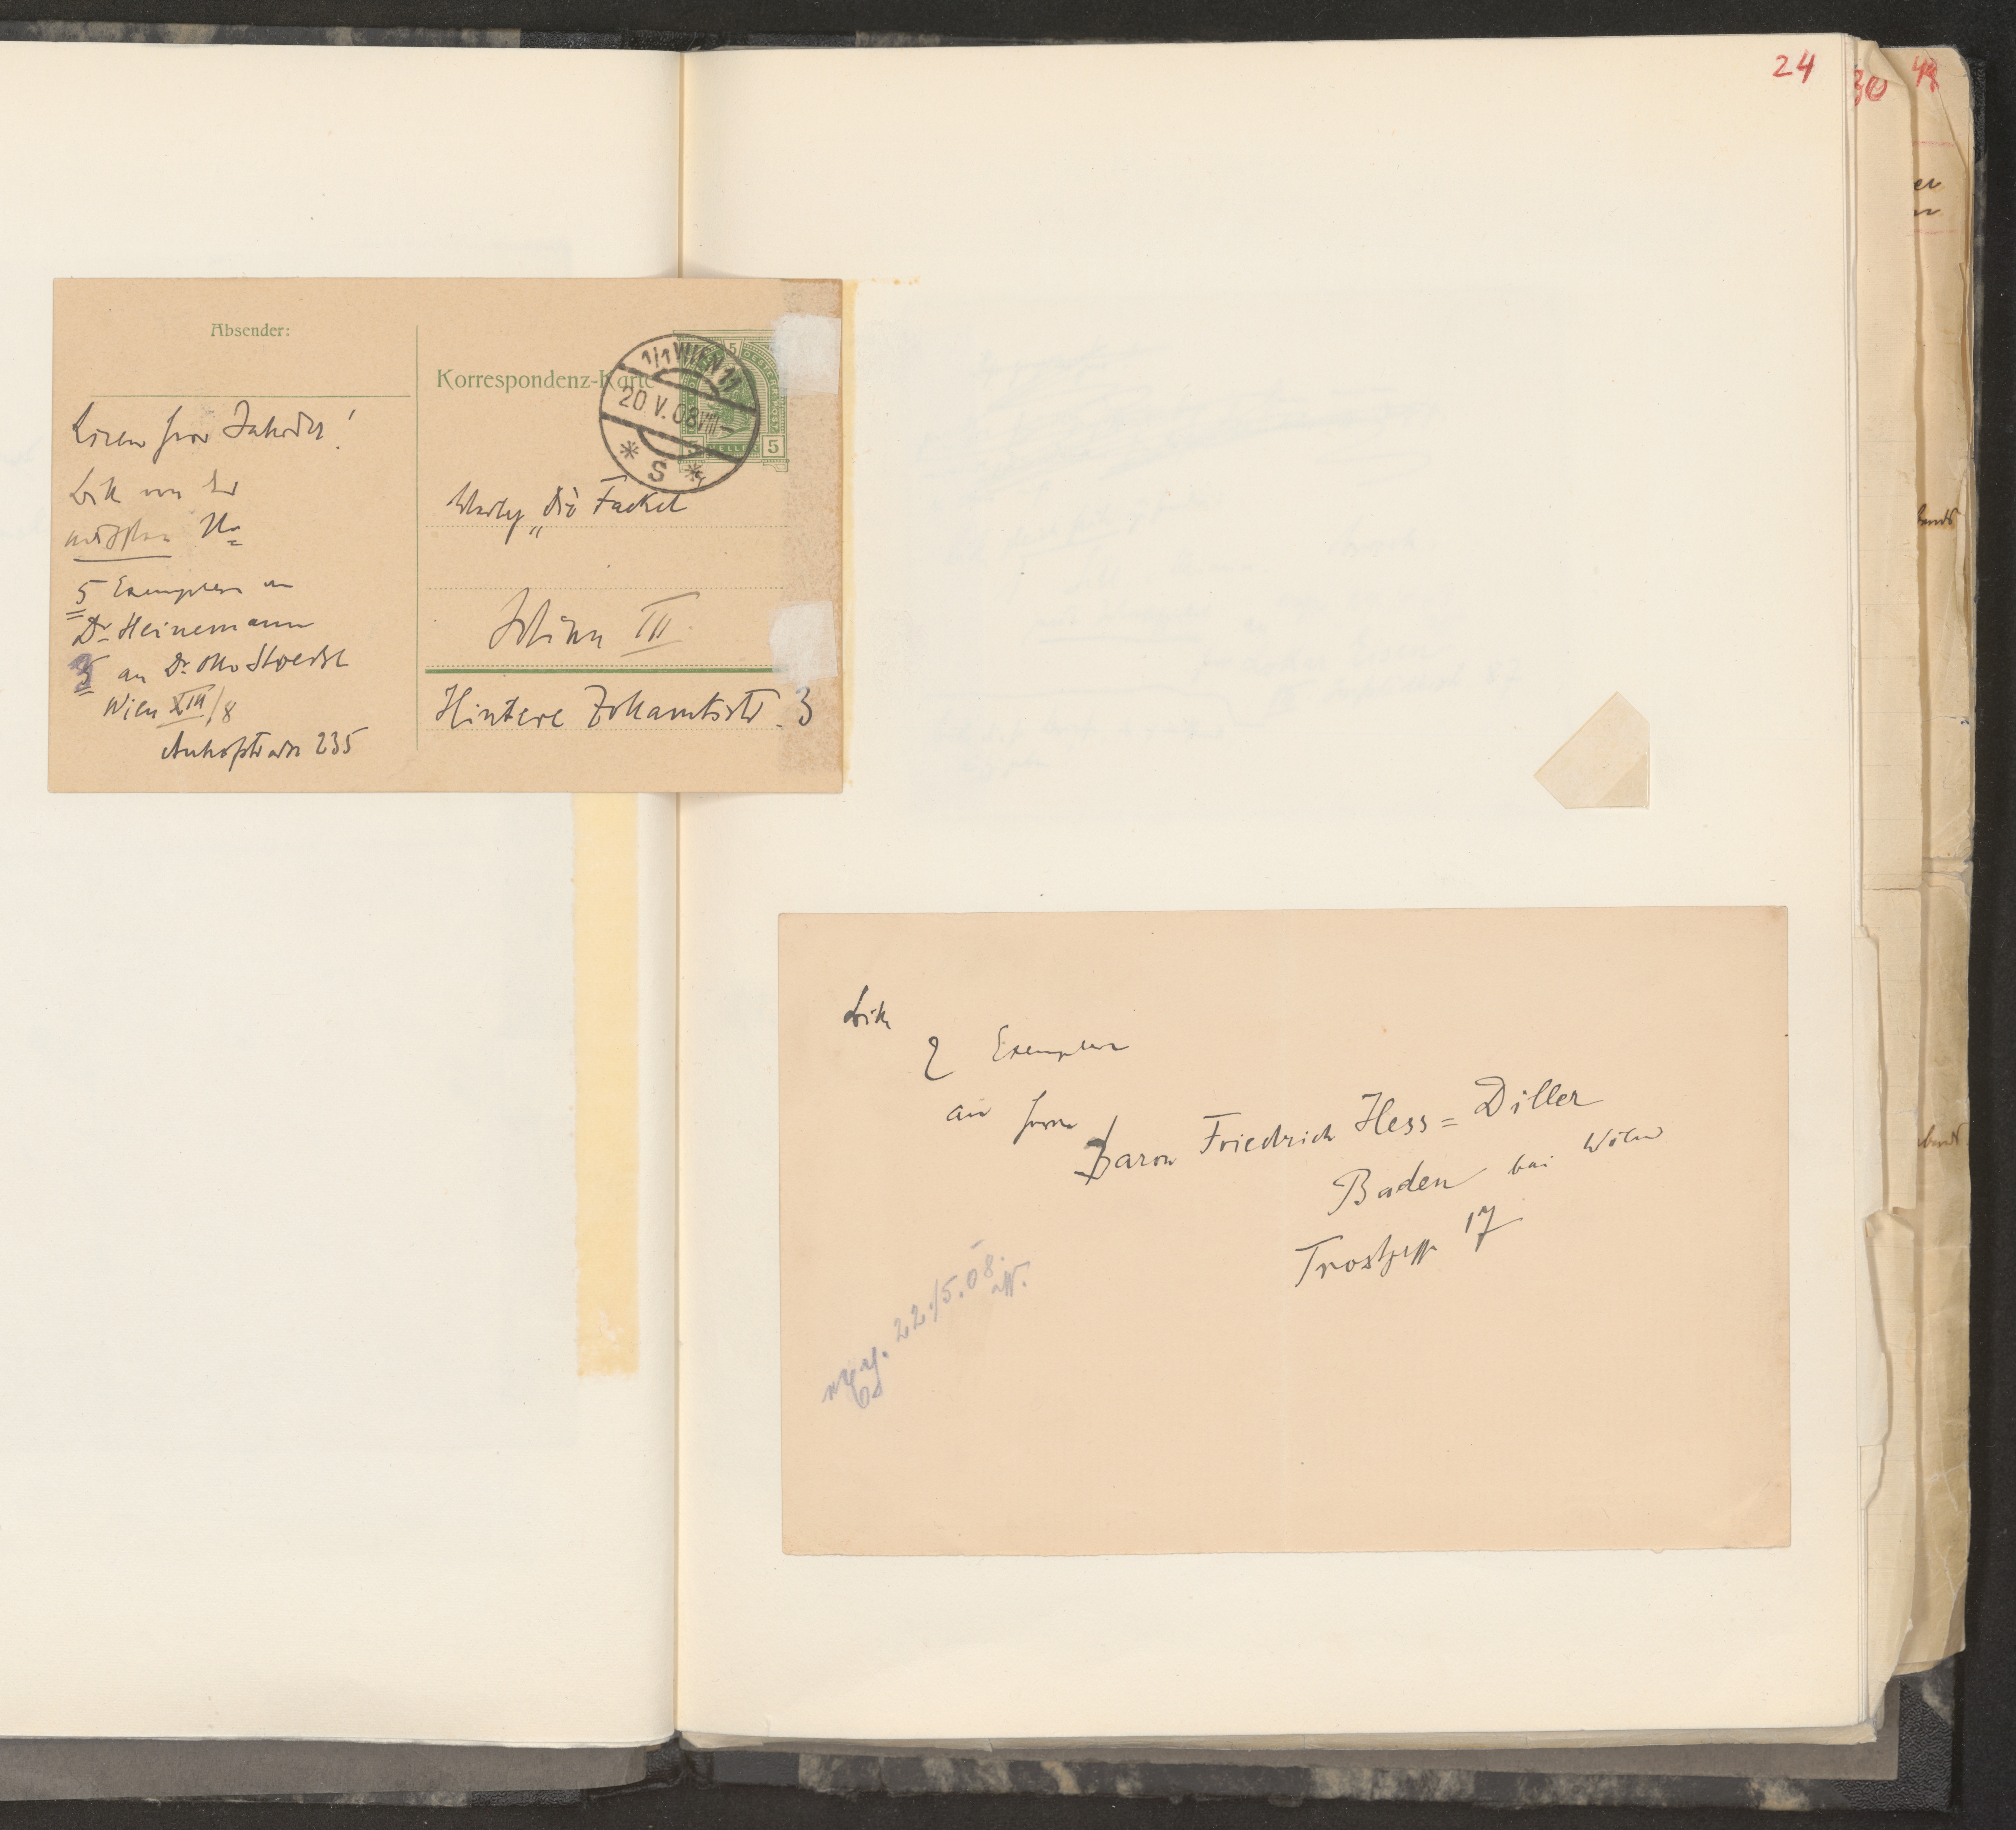 24
30
Absender:
Lieber Herr Jahoda!
Bitte von der
nächsten Nr
5 Exemplare an
Dr. Heinemann
5 an Dr. Otto Stoessl
Wien XIII/8
Auhofstrasse 235
Korrespondenz-Karte
1/1 WIEN 11
20 V. 08 VIII–
* S *
5
5
Verlag „Die Fackel
Wien III
Hintere Zollamtsstr. 3
Bitte
2 Exemplare
an Herrn
Baron Friedrich Hess=Diller
Baden bei Wien
Trostgasse 17
22./5.08.